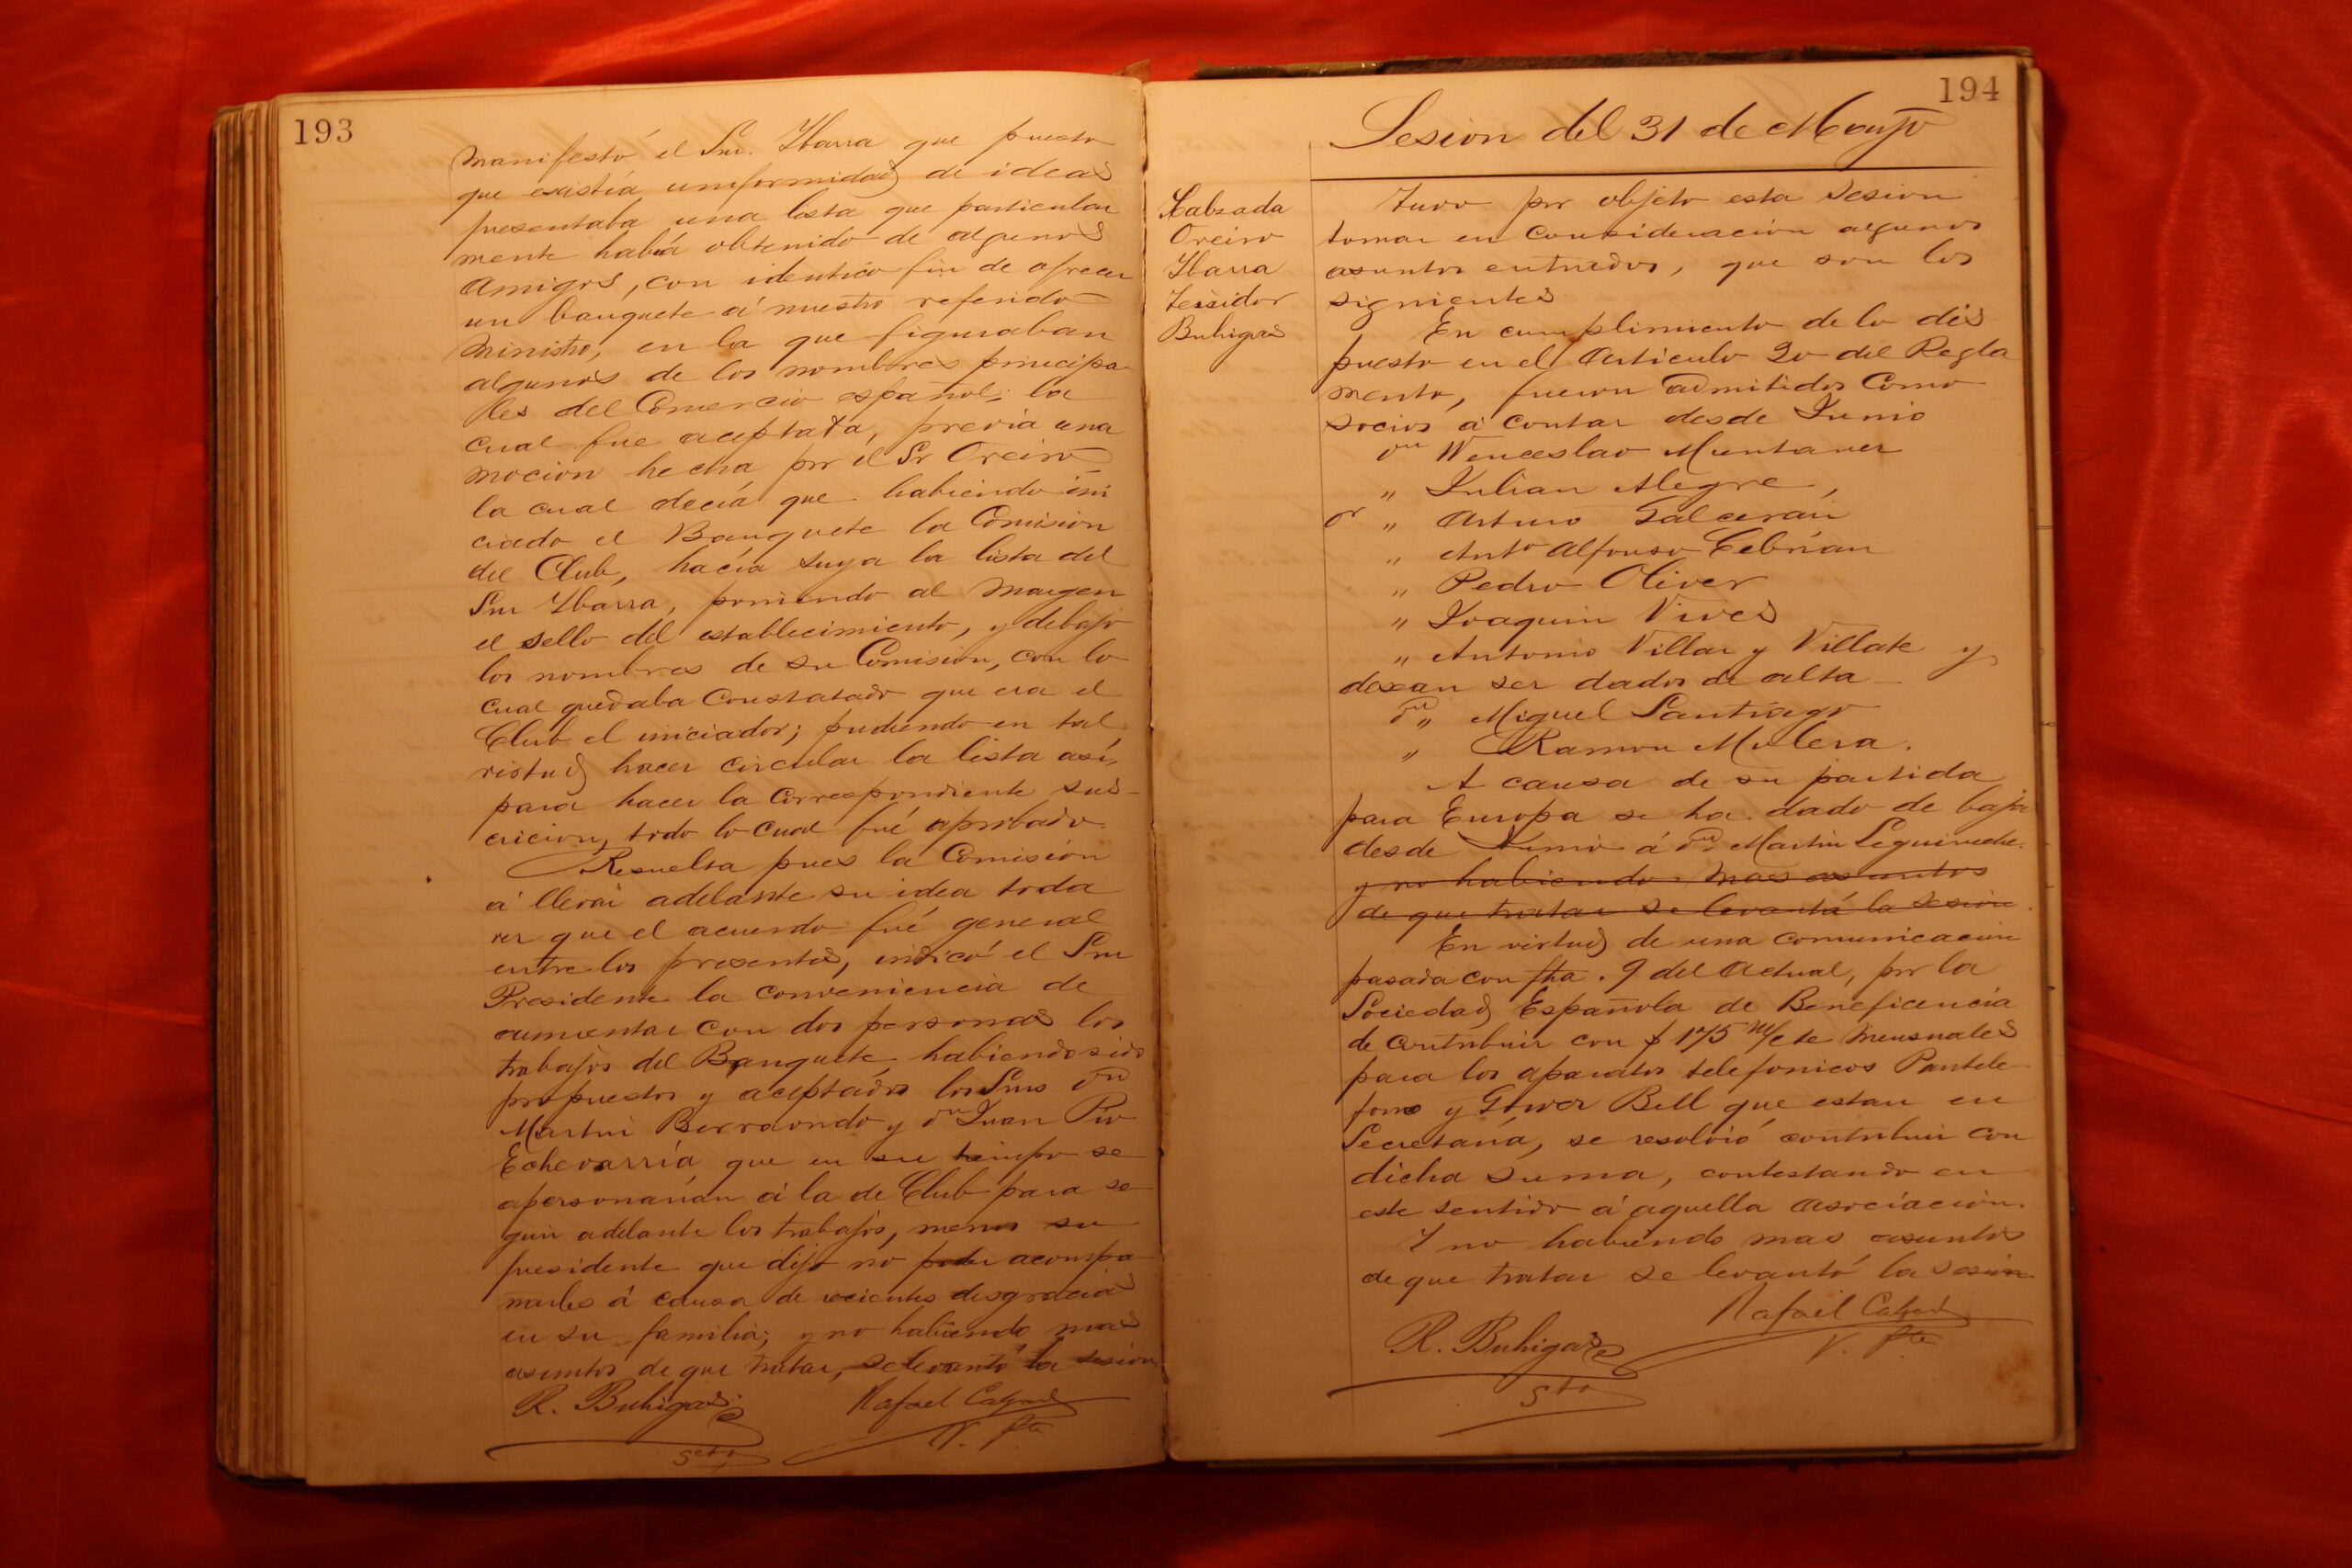 193
manifestó el Snr. Ybarra que puesto
que existía uniformidad de ideas
presentaba una lista que particular
mente había obtenido de algunos
amigos, con identico fin de ofrecer
un banquete á nuestro referido
Ministro, en la que figuraban
algunos de los nombres principa
les del Comercio español; la
cual fue aceptada, previa una
moción hecha por el Sr Oreiro
la cual decía que habiendo ini
ciado el Banquete la Comisión
del Club, hacía suya la lista del
Snr Ybarra, poniendo al margen
el sello del establecimiento, y debajo
los nombres de su Comisión, con lo
cual quedaba constatado que era el
Club el iniciador; pudiendo en tal
virtud hacer circular la lista así,
para hacer la correspondiente sus-
cricion, todo lo cual fué aprobado.
Resuelta pues la Comisión
á llevar adelante su idea toda
vez que el acuerdo fué general
entre los presentes, indicó el Snr
Presidente la conveniencia de
aumentar con dos personas los
trabajos del Banquete, habiendo sido
propuestos y aceptados los Snrs Dn
Martin Berraondo y Dn Juan Pio
Echevarría que en su tiempo se
apersonarían á la de Club para se
guir adelante los trabajos, menos su
presidente que dijo no poder acompa
ñarles á causa de recientes desgracias
en su familia; y no habiendo mas
asuntos de que tratar, se levantó la sesion
R. Buhigas Rafael Calzada
Scto V. Pte
194
Sesion del 31 de Mayo
Calzada
Oreiro
Ybarra
Tessidor
Buhigas
Tuvo por objeto esta sesion
tomar en consideracion algunos
asuntos entrados, que son los
siguientes
En cumplimiento de lo dis
puesto en el Articulo 20 del Regla
mento, fueron admitidos como
socios á contar desde Junio
Dn Wenceslao Muntaner
" Julian Alegre,
" Arturo Galcerán
" Anto Alfonso Cebrían
" Pedro Oliver
" Joaquin Vives
" Antonio Villar y Villate y
desean ser dados de alta
Dn " Miguel Santiago
" Ramon Mulera.
A causa de su partida
para Europa se ha dado de baja
desde Junio á Dn Martin Leguineche.
y no habiendo mas asuntos
de que tratar se levantó la sesion.
En virtud de una comunicacion
pasada con fha. 9 del actual, por la
Sociedad Española de Beneficencia
de contribuir con $ 175 m/cte mensuales
para los aparatos telefonicos Pantele
fono y Gower Bell que estan en
Secretaría, se resolvió contribuir con
dicha suma, contestando en
este sentido á aquella Asociación.
Y no habiendo mas asuntos
de que tratar se levantó la sesion
R. Buhigas Rafael Calzada
Sto V. Pte